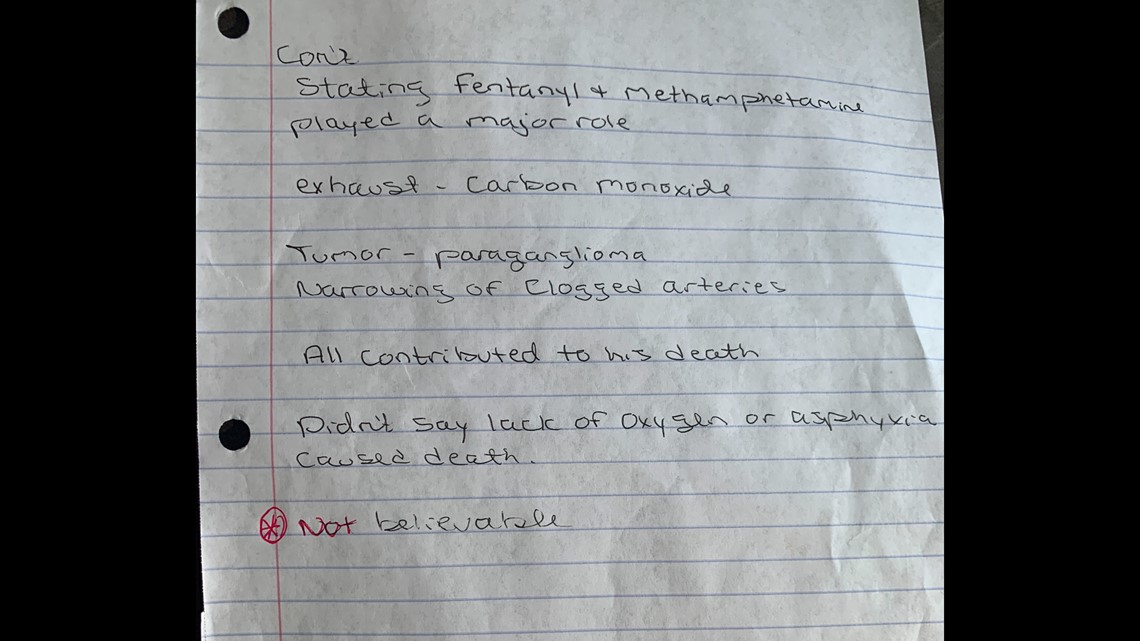 Con't
Stating Fentanyl + Methamphetamine
played a major role
exhaust - Carbon monoxide
Tumor - paraganglioma
Narrowing of Clogged arteries
All contributed to his death
Didn't say lack of oxygen or asphyxia
caused death.
Not believable